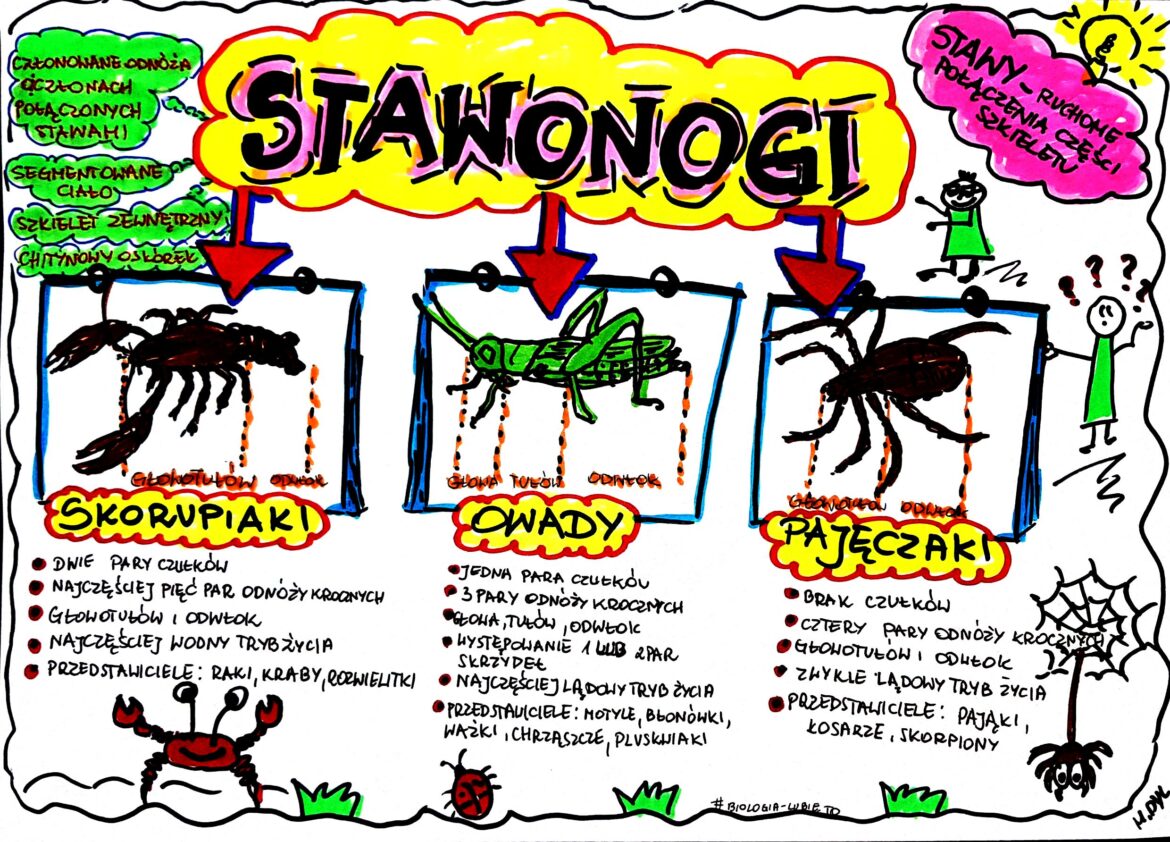 STAWONOGI
CZŁONOWANE ODNÓŻA
O CZŁONACH
POŁĄCZONYCH
STAWAMI
SEGMENTOWANE
CIAŁO
SZKIELET ZEWNĘTRZNY
CHITYNOWY OSKÓREK
STAWY - RUCHOME
POŁĄCZENIA CZĘŚCI
SZKIELETU
? ? ?
GŁOWOTUŁÓW ODWŁOK
SKORUPIAKI
DWIE PARY CZUŁKÓW
NAJCZĘŚCIEJ PIĘĆ PAR ODNÓŻY KROCZNYCH
GŁOWOTUŁÓW I ODWŁOK
NAJCZĘŚCIEJ WODNY TRYB ŻYCIA
PRZEDSTAWICIELE: RAKI, KRABY, ROZWIELITKI
GŁOWA TUŁÓW ODWŁOK
OWADY
JEDNA PARA CZUŁKÓW
3 PARY ODNÓŻY KROCZNYCH
GŁOWA, TUŁÓW, ODWŁOK
WYSTĘPOWANIE 1 LUB 2 PAR
SKRZYDEŁ
NAJCZĘŚCIEJ LĄDOWY TRYB ŻYCIA
PRZEDSTAWICIELE: MOTYLE, BŁONÓWKI,
WAŻKI, CHRZĄSZCZE, PLUSKWIAKI
GŁOWOTUŁÓW ODWŁOK
PAJĘCZAKI
BRAK CZUŁKÓW
CZTERY PARY ODNÓŻY KROCZNYCH
GŁOWOTUŁÓW I ODWŁOK
ZWYKLE LĄDOWY TRYB ŻYCIA
PRZEDSTAWICIELE: PAJĄKI,
KOSARZE, SKORPIONY
#BIOLOGIA-LUBIĘ TO